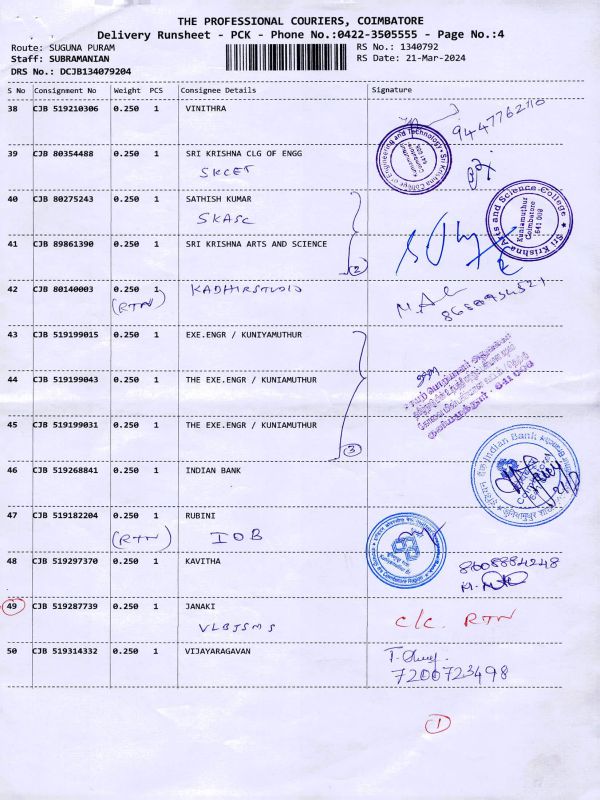 THE PROFESSIONAL COURIERS, COIMBATORE
Delivery Runsheet - PCK - Phone No.:0422-3505555 - Page No.:4
Route: SUGUNA PURAM
RS No.: 1340792
Staff: SUBRAMANIAN
RS Date: 21-Mar-2024
DRS No.: DCJB134079204
S No Consignment No Weight PCS Consignee Details Signature
38 CJB 519210306 0.250 1 VINITHRA
39 CJB 80354488 0.250 1 SRI KRISHNA CLG OF ENGG
SKCET
Sri Krishna College of Engineering and Technology
Kuniamuthur
Coimbatore
641 008
40 CJB 80275243 0.250 1 SATHISH KUMAR
SKASC
Sri Krishna Arts and Science College
Kuniamuthur
Coimbatore
641 008
41 CJB 89861390 0.250 1 SRI KRISHNA ARTS AND SCIENCE
2
42 CJB 80140003 0.250 1 KADHIRSTUDIO
(RTN)
43 CJB 519199015 0.250 1 EXE.ENGR / KUNIYAMUTHUR
44 CJB 519199043 0.250 1 THE EXE.ENGR / KUNIAMUTHUR
45 CJB 519199031 0.250 1 THE EXE.ENGR / KUNIAMUTHUR
3
46 CJB 519268841 0.250 1 INDIAN BANK
Indian Bank
47 CJB 519182204 0.250 1 RUBINI
(RTN) IOB
48 CJB 519297370 0.250 1 KAVITHA
8608884248
49 CJB 519287739 0.250 1 JANAKI
VLBJSMS
C/C RTN
50 CJB 519314332 0.250 1 VIJAYARAGAVAN
7200723498
1